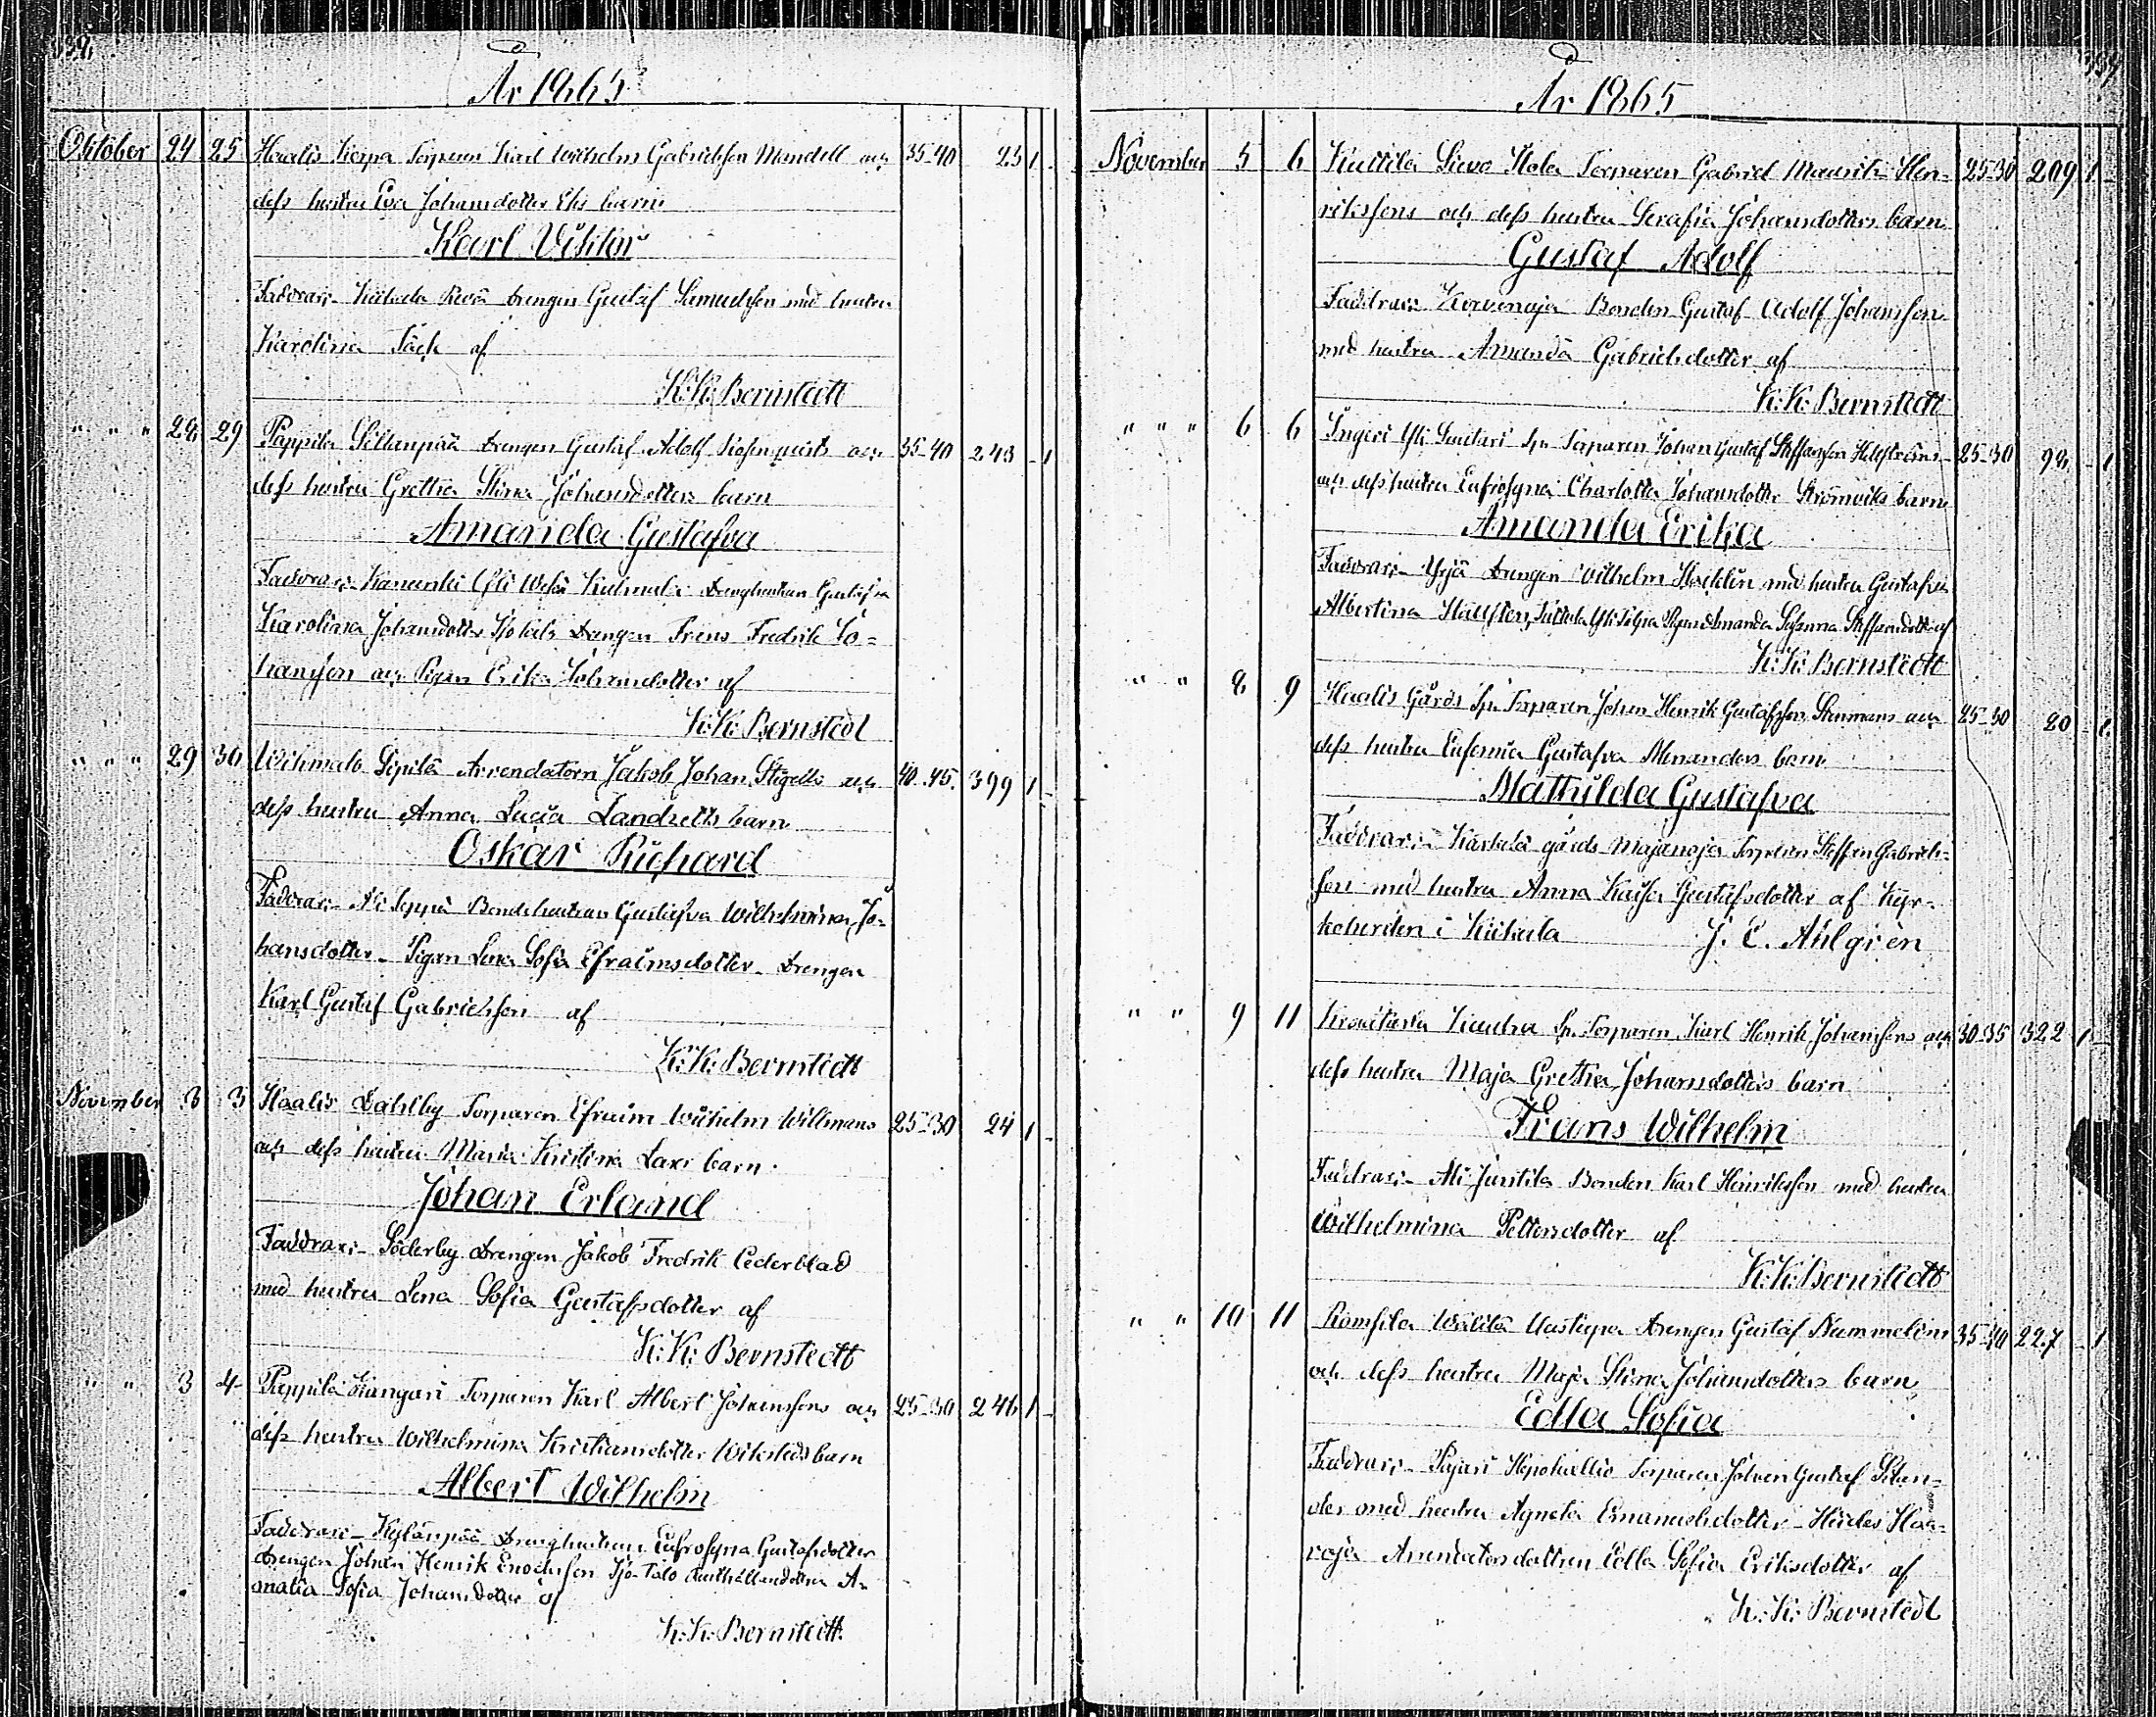 År 1865
Oktober 24 25 Haalis Torparen Karl Wilhelm Gabrielsson Mandell och 35-40 25 1 -
dess hustru Eva Johansdotter Eks barn
Karl Viktor
Faddrar:- drengen Gustaf Samuelsson med hustru
Karolina Täck af
K:K: Bernstedt
" " " 28 29 Pappila Siltanpää Drengen Gustaf Adolf och 35-40 243 - 1
dess hustru Gretha Stina Johansdotters barn
Amanda Gustafva
Faddrar:- Gustafva
Karolina Johansdotter Drengen Frans Fredrik Jo=
hansson och Pigan Erika Johansdotter af
K:K: Bernstedt
" " " 29 30 Wihmalo Sipilä Arrendatorn Jakob Johan Stigells och 40-45. 399 1 -
dess hustru Anna Lucia Landsetts barn
Oskar Richard
Faddrar:- Ali Seppä Bondehustrun Gustafva Wilhelmina Jo-
hansdotter - Pigan Lena Sofia Efraimsdotter - Drengen
Karl Gustaf Gabrielsson af
K:K: Bernstedt
November 3 3 Haalis Dahlby Torparen Efraim Wilhelm Willmans 25-30 24 1 -
och dess hustru Maria Kristina Lars barn.
Johan Erland
Faddrar:- Söderby Drengen Jakob Fredrik Cederblad
med hustru Lena Sofia Gustafsdotter af
K:K: Bernstedt
" " 3 4 Pappila Kangari Torparen Karl Albert Johanssons och 25-30 246 1 -
dess hustru Wilhelmina Kristiansdotter Wikstedts barn
Albert Wilhelm
Faddrar:- Kylänpää Drenghustrun Eufrosyna Gustafsdotter
drengen Johan Henrik Enochsson A-
malia Sofia Johansdotter af
K:K: Bernstedt.
År 1865
November 5 6 Kuttila Torparen Gabriel Maurits Hen- 25-30 209 1 -
rikssons och dess hustru Serafia Johansdotters barn
Gustaf Adolf
Faddrar:- Korvenoja Bonden Gustaf Adolf Johansson
med hustru Amanda Gabrielsdotter af
K:K: Bernstedt
" " " 6 6 Torparen Johan Gustaf Steffansson Hellströms 25-30 98 - 1
och dess hustru Eufrosyna Charlotta Johansdotter Strömviks barn
Amanda Erika
Faddrar:- Yrjä Drengen Wilhelm med hustru Gustafva
Albertina Hällsten, Pigan Amanda Susanna Steffansdotter af
K:K: Bernstedt
" " 8 9 Haalis Gårds Torparen Johan Henrik Gustafsson Stenmans och 25-30 20 - 1
dess hustru Eufemia Gustafva Menanders barn
Mathilda Gustafva
Faddrar:- Kärkelä gårds Majanoja Torparen Steffan Gabriels-
son med hustru Anna Kajsa Gustafsdotter af Kyr-
koherden i Kiikala J. E. Ahlgren
" " 9 11 Torparen Karl Henrik Johanssons och 30-35 322 1 -
dess hustru Maja Gretha Johansdotters barn
Frans Wilhelm
Faddrar:- Ali Junttila Bonden Karl Henriksson med hustru
Wilhelmina Pettersdotter af
K:K: Bernstedt
" " 10 11 Romsila Drengen Gustaf Nummelins 35-40 227 - 1
och dess hustru Maja Stina Johansdotters barn
Edla Sofia
Faddrar:- Pajari Hepokallio Torparen Johan Gustaf Silan-
der med hustru Agneta Emanuelsdotter - Haa=
roja Arrendatorsdottren Edla Sofia Eriksdotter af
K:K: Bernstedt